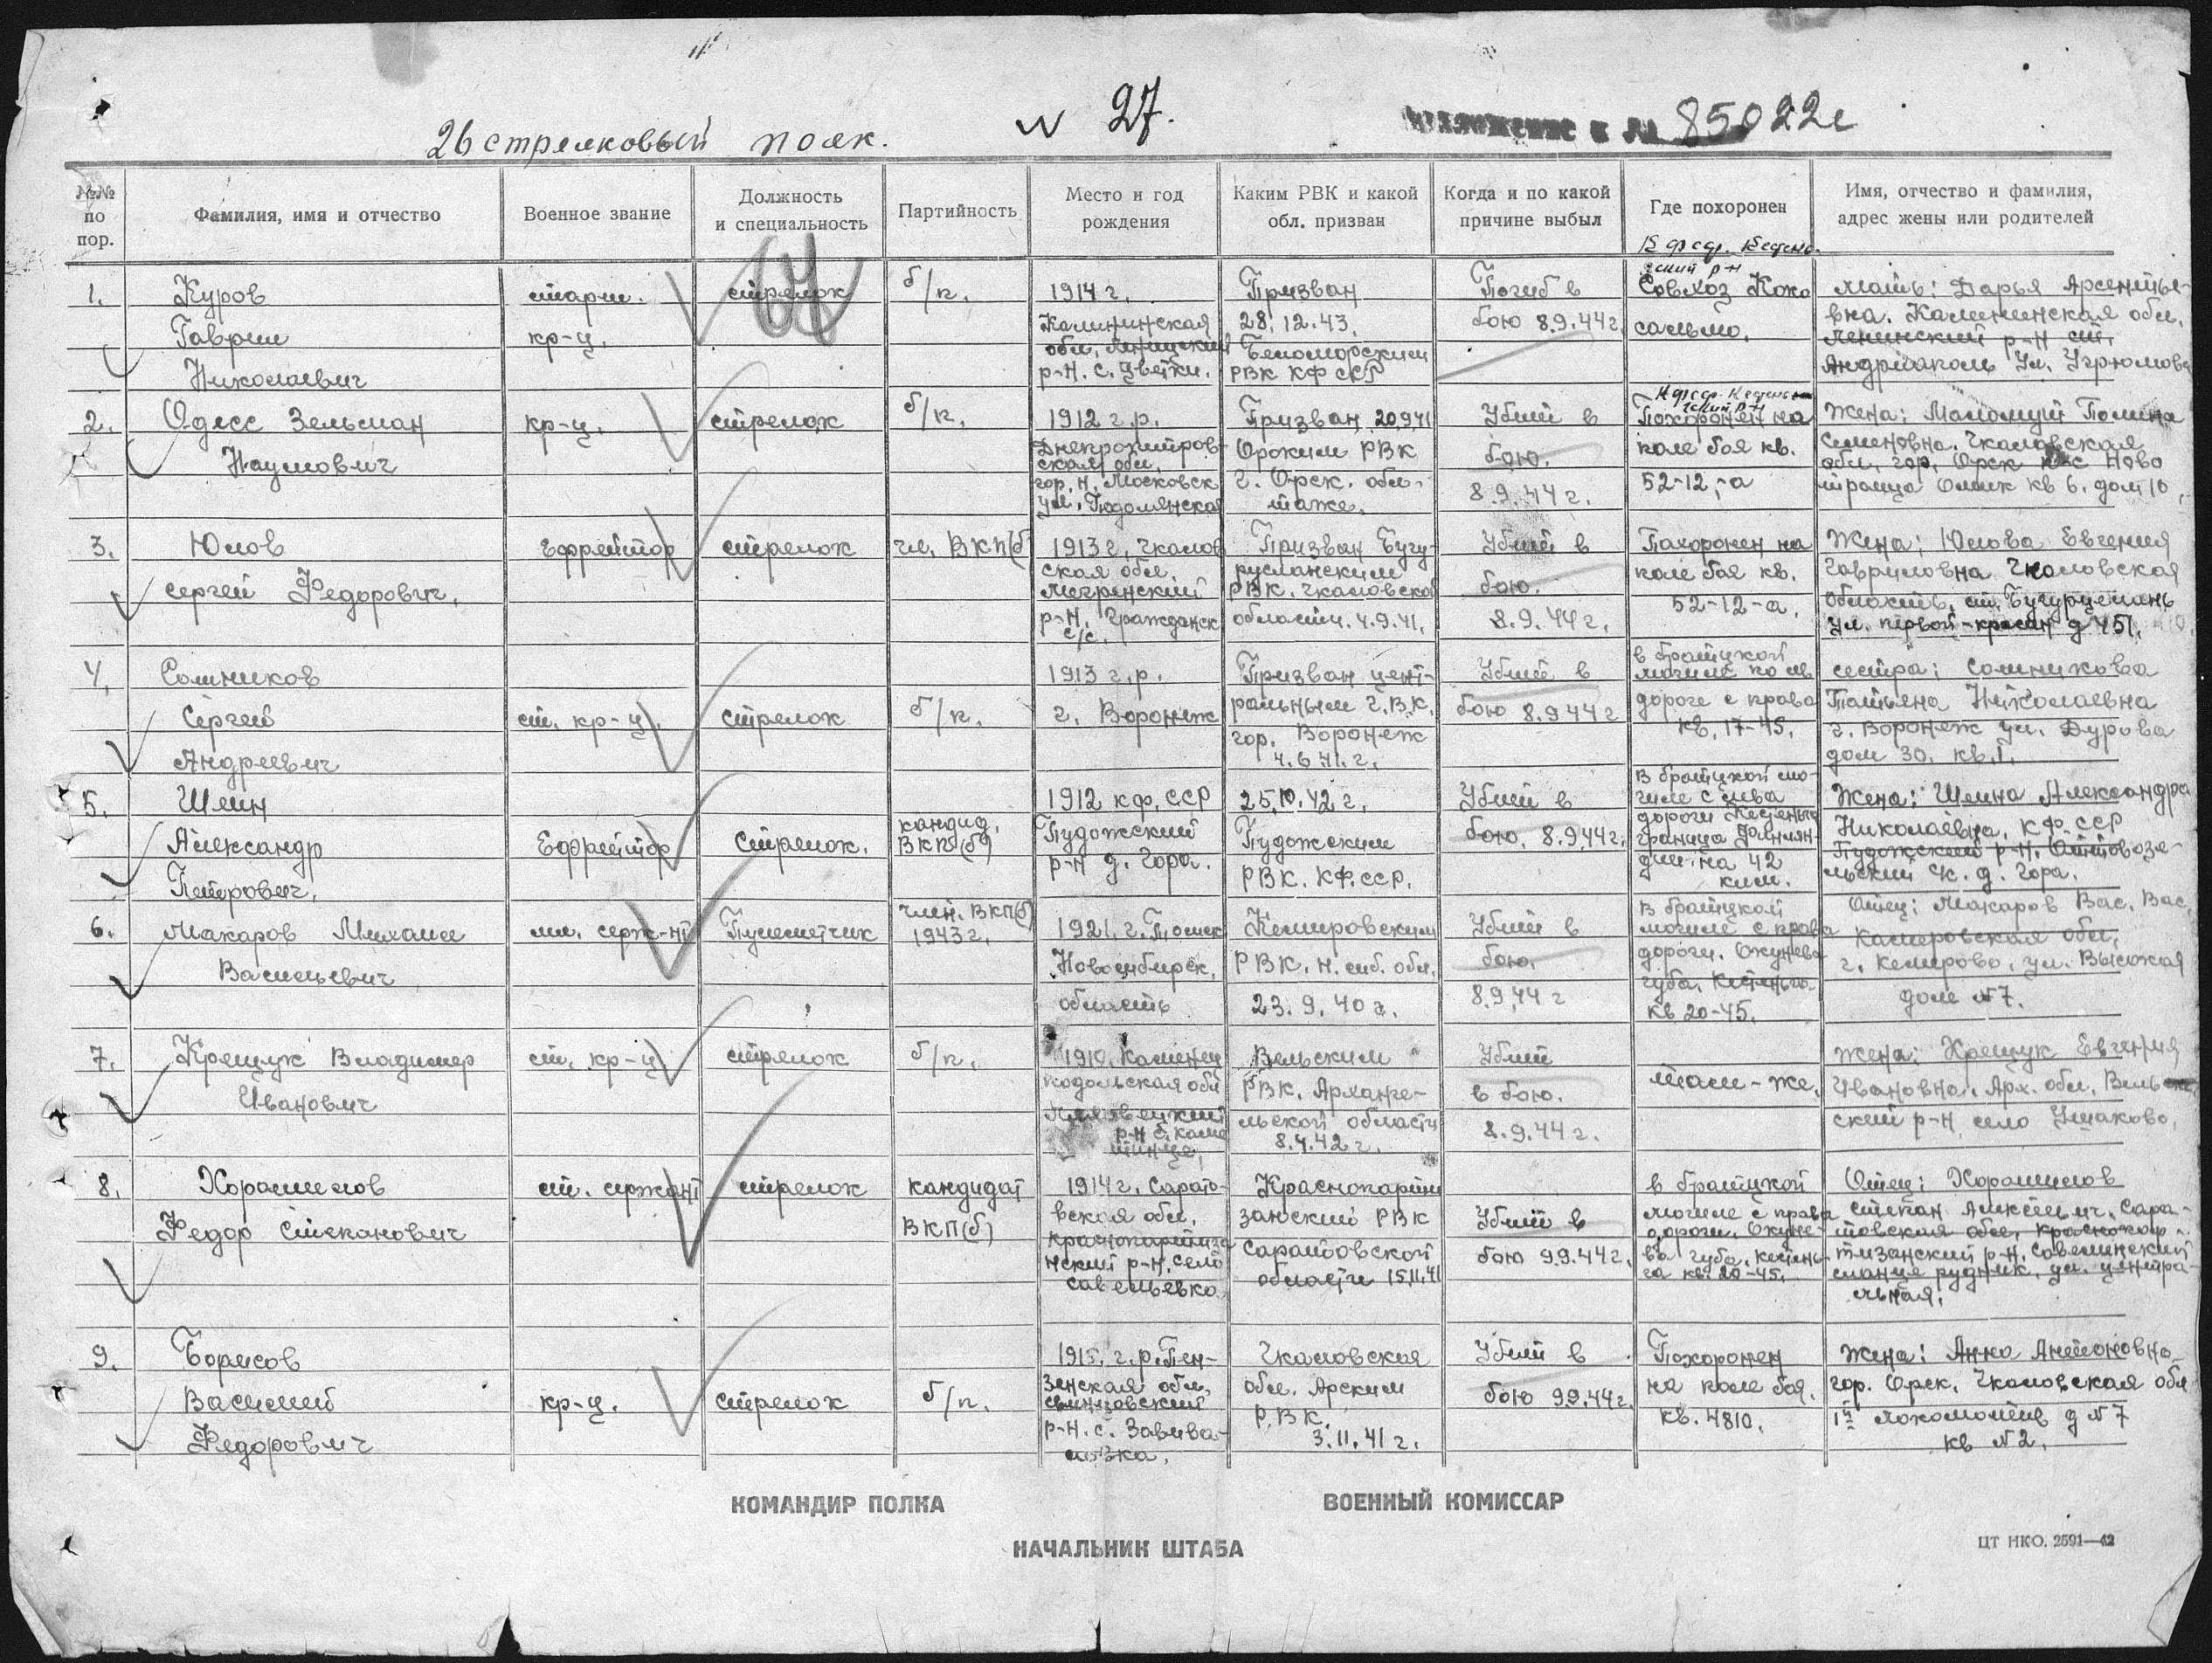 N 27.
26 стрелковый полк.
Приложение к № 85022с
№№ по пор.
Фамилия, имя и отчество
Военное звание
Должность и специальность
Партийность
Место и год рождения
Каким РВК и какой обл. призван
Когда и по какой причине выбыл
Где похоронен
Имя, отчество и фамилия, адрес жены или родителей
1.
Куров
Гаврил
Николаевич
старш.
кр-ц.
стрелок
б/п.
1914 г.
Калининская
обл.
р-н. с. Цветки.
Призван
28.12.43.
Беломорским
РВК КФССР
Погиб в
бою 8.9.44 г.
Совхоз Коко
сальмо.
Мать: Дарья Арсентье-
вна. Калининская обл.
Ленинский р-н ст.
Андриаполь ул. Угрюмова
2.
Одесс Зельман
Наумович
кр-ц.
стрелок
б/п.
1912 г.р.
Днепропетров-
ская обл.
гор. Н. Московск
ул.
Призван 20.9.41
Орским РВК
г. Орск. обл.
таже.
Убит в
бою.
8.9.44 г.
Похоронен на
поле боя кв.
52-12-а
Жена: Маломуй Полина
Семеновна. Чкаловская
обл. гор. Орск пос Ново
кв 6. дом 10
3.
Юлов
Сергей Федорович.
Ефрейтор
стрелок
чл. ВКП(б
1913 г. Чкалов
ская обл.
р-н. Гражданск
с/с.
Призван Бугу-
русланским
РВК. Чкаловской
области. 4.9.41.
Убит в
бою.
8.9.44 г.
Похоронен на
поле боя кв.
52-12-а.
Жена: Юлова Евгения
Гавриловна Чкаловская
область. ст.
ул. первой-красн д 451.
4.
Сольников
Сергей
Андреевич
ст. кр-ц.
стрелок
б/п.
1913 г.р.
г. Воронеж
Призван цент-
ральным Г.В.К.
гор. Воронеж
4.6.41. г.
Убит в
бою 8.9.44 г
в братской
могиле по
дороге с права
кв. 17-45.
сестра: Сольникова
Татьяна Николаевна
г. Воронеж ул. Дурова
дом 30. кв. 1.
5.
Шеин
Александр
Петрович.
Ефрейтор
Стрелок.
кандид.
ВКП(б)
1912 КФ.ССР
Пудожский
р-н д. Гора.
25.10.42 г.
Пудожским
РВК. КФ.ССР.
Убит в
бою. 8.9.44 г.
В братской мо-
гиле с лева
дороги Кестеньга
граница Финлян-
дии на 42
клм.
Жена: Шеина Александра
Николаевна. КФ ССР
Пудожский р-н.
д. Гора.
6.
Макаров Михаил
Васильевич
мл. серж-нт
Пулеметчик
член. ВКП(б)
1943 г.
1921. г. Томск
Новосибирск.
область
Кемеровским
РВК. Н. сиб. обл.
23. 9. 40 г.
Убит в
бою.
8.9.44 г
В братской
могиле с права
дороги. Окунева
губа. Кестеньга.
кв 20-45.
Отец: Макаров Вас. Вас.
Камеровская обл.
г. Кемерово. ул. Высокая
дом №7.
7.
Крещук Владимер
Иванович
ст. кр-ц
стрелок
б/п.
1910. Каменец
подольская обл
Вельским
РВК. Арханге-
льской области
8.4.42 г.
Убит
в бою.
8.9.44 г.
там-же.
Жена: Крещук Евгения
Ивановна. Арх. обл. Вель
ский р-н село Ушаково.
8.
Хорошилов
Федор Степанович
ст. сержант
стрелок
кандидат
ВКП(б)
1914 г. Сарато-
вская обл.
краснопартиза
нский р-н. село
савельевка
Краснопарти
занский РВК
Саратовской
области 15.11.41
Убит в
бою 9.9.44 г.
в братской
могиле с права
дороги. Окуне-
ва губа. кестень-
га кв. 20-45.
Отец: Хорошилов
Степан Алексеич. Сара-
товская обл. краснопар-
тизанский р-н. Савелинский
сланце рудник. ул. центра-
льная.
9.
Борисов
Василий
Федорович
кр-ц.
стрелок
б/п.
1915. г.р. Пен-
зенская обл.
р-н. с. Завива-
ловка.
Чкаловская
обл. Арским
Р.В.К.
3.11.41 г.
Убит в
бою 9.9.44 г.
Похоронен
на поле боя.
кв. 4810.
Жена: Анна Антоновна
гор. Орск. Чкаловская обл
локомотив д №7
кв №2.
КОМАНДИР ПОЛКА
ВОЕННЫЙ КОМИССАР
НАЧАЛЬНИК ШТАБА
ЦТ НКО. 2591—42